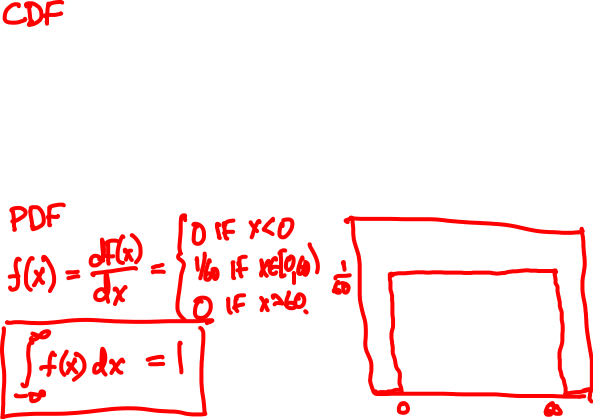 CDF
PDF
f(x) = dF(x)/dx = { 0 IF x<0
1/60 IF x∈[0,60)
0 IF x≥60.
∫_{-∞}^{∞} f(x) dx = 1
1/60
0 60